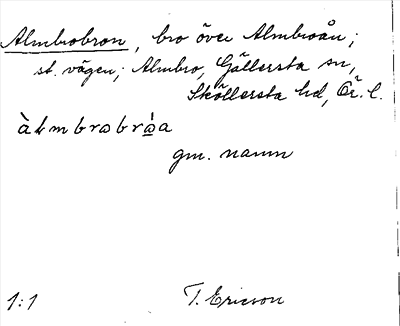 Almbrobron, bro över Almbroån;
st. vägen; Almbro, Gällersta sn,
Sköllersta hd, Ör. l.
àłmbrωbrὼa
gm. namn
1:1 T. Ericson